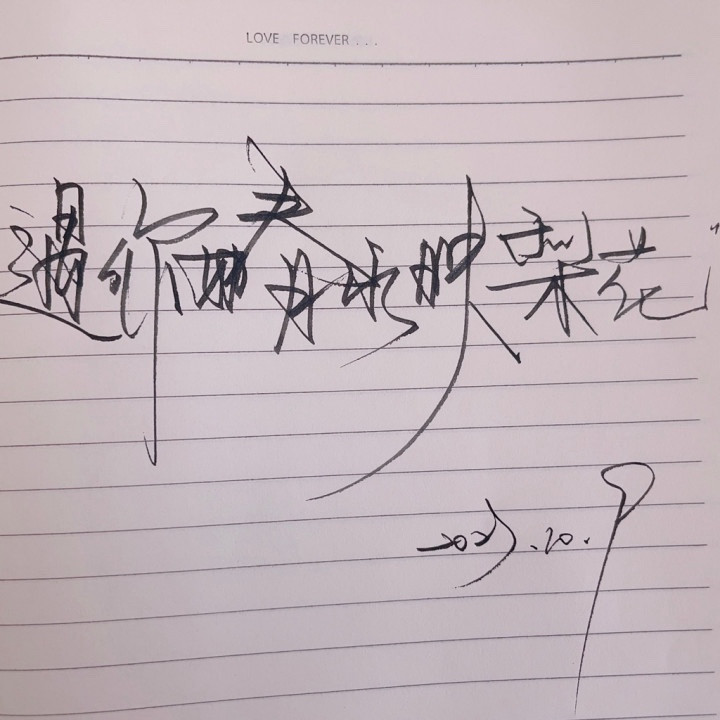 LOVE FOREVER...
遇你,如春水映梨花"
2023.10.9